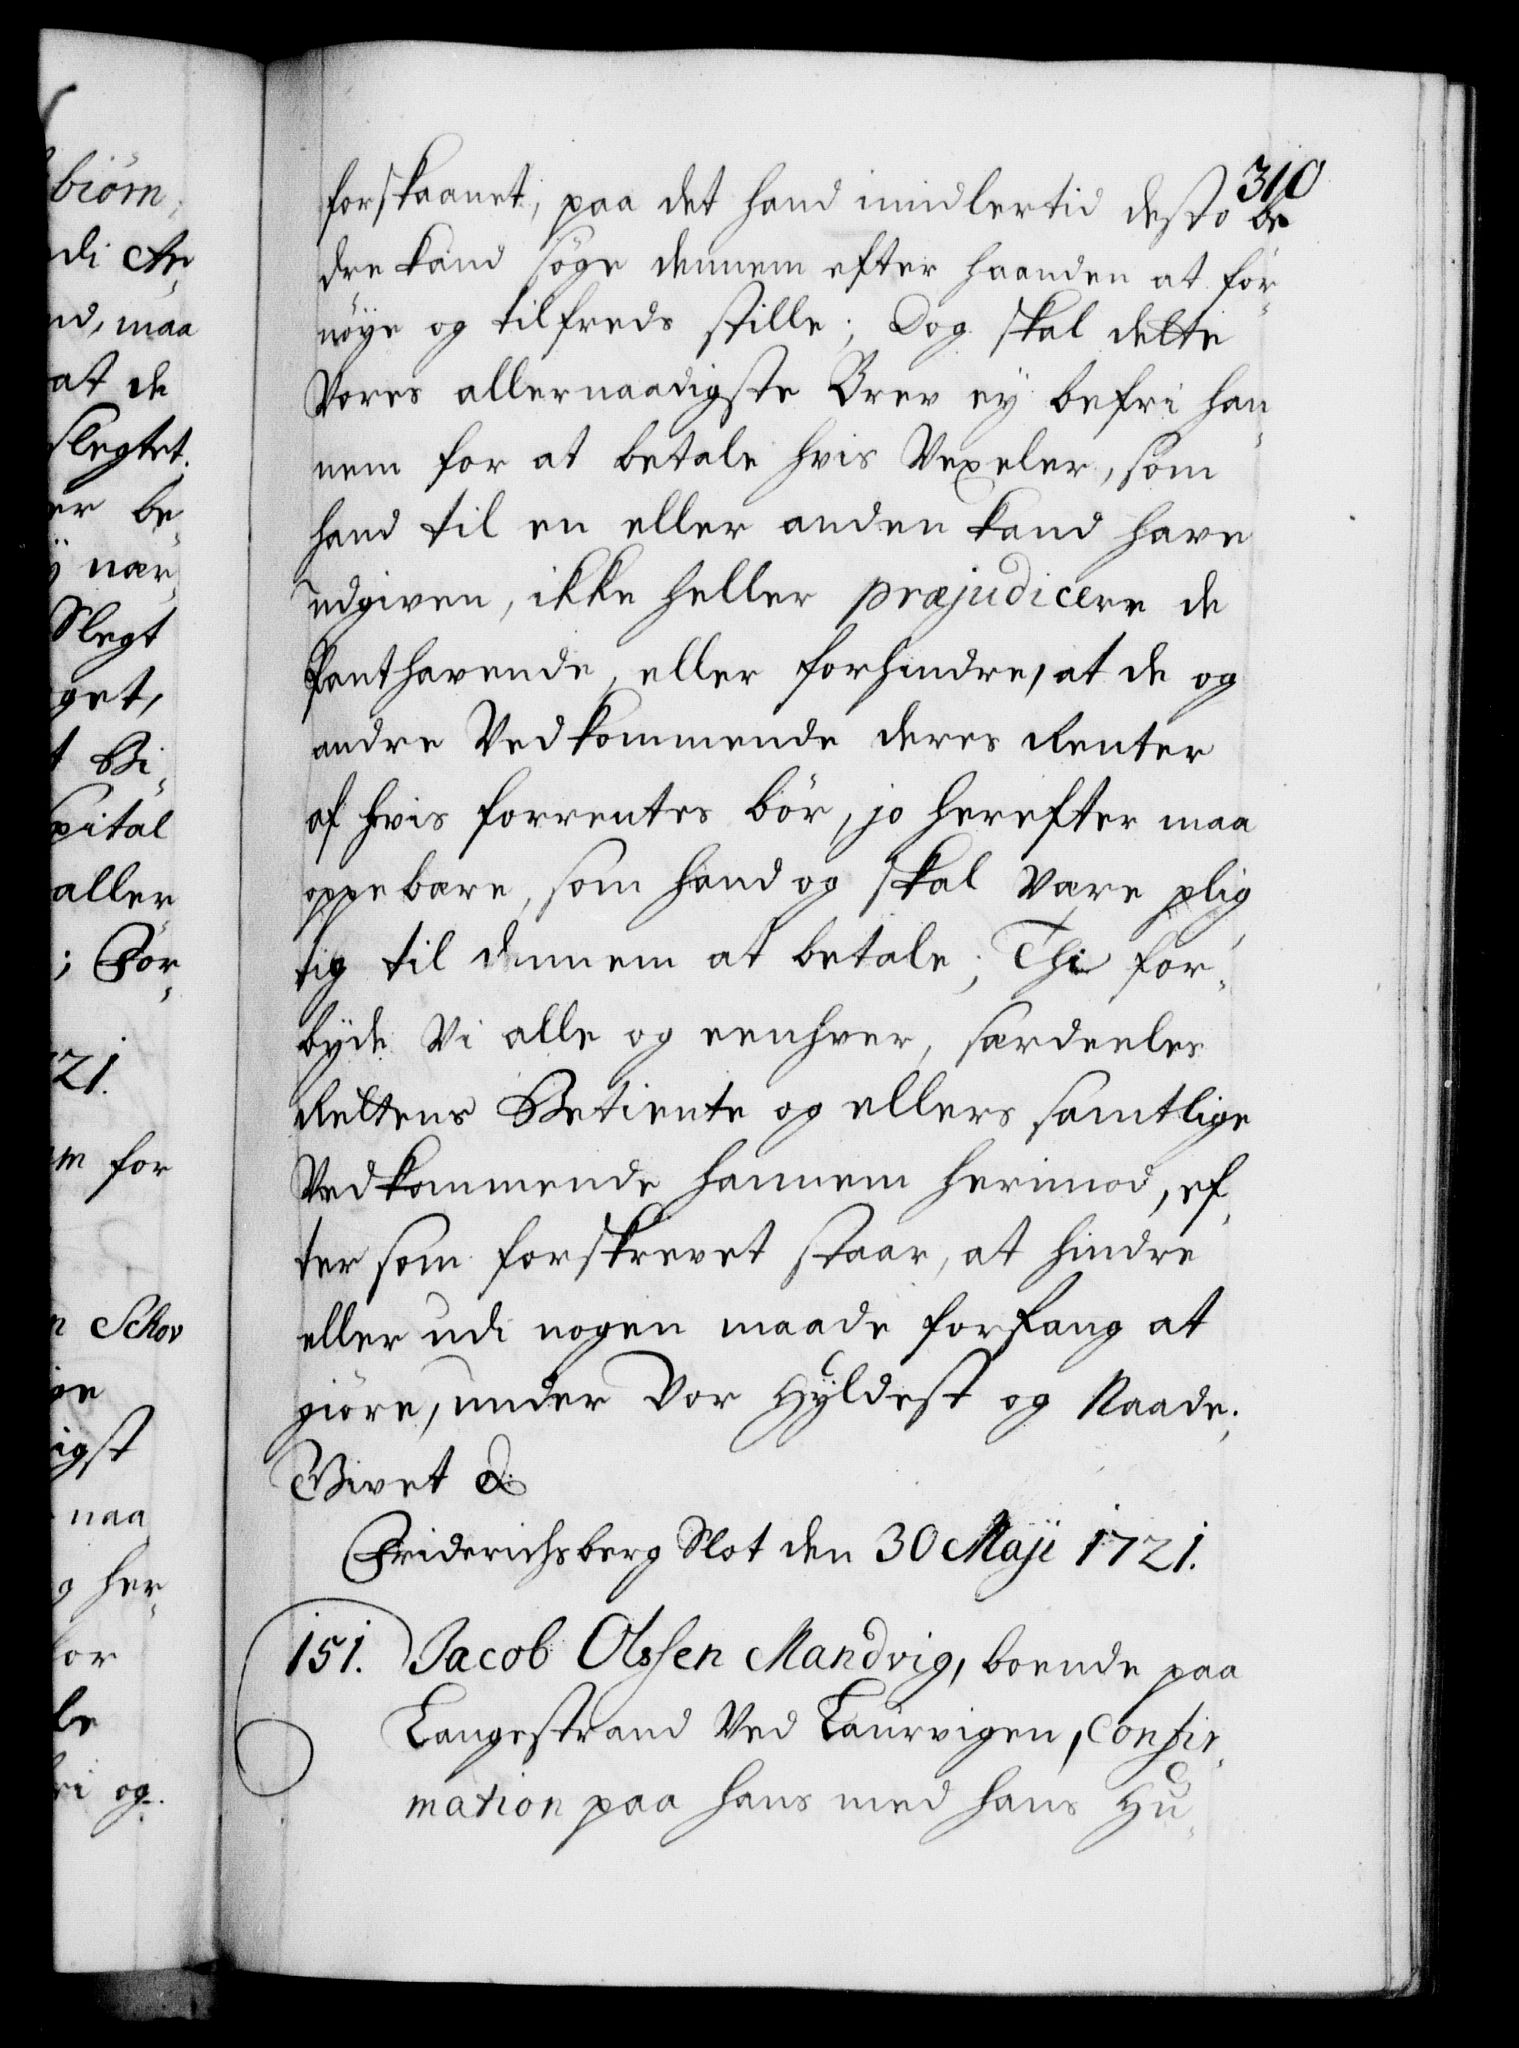 310
forskaanet, paa det hand imidlertid desto be
dre kand söge dennem efter haanden at for„
nöye og tilfreds stille; Dog skal dette
Vores allernaadigste Brev ey befri han„
nem for at betale hvis Vexeler, som
hand til en eller anden kand have
udgiven, ikke heller præjudicere de
Panthavende, eller forhindre, at de og
andre Vedkommende deres Renter
af hvis forrentes bör, jo herefter maa
oppebære, som hand og skal være plig„
tig til dennem at betale; Thi for„
byde Vi alle og eenhver, særdeeles
Rettens Betiente og ellers samtlige
Vedkommende hannem herimod, ef„
ter som forskrevet staar, at hindre
eller udi nogen maade forfang at
giöre, under Vor Hyldest og Naade.
Givet &
Friderichsberg Slot den 30 Maji 1721.
151. Jacob Olssen Mandvig, boende paa
Langestrand ved Laurvigen, Confir„
mation paa hans med hans Hu„
biörn,
di An„
nd, maa
at de
slegtet.
er be„
ÿ nær„
Slegt
get,
t Bi„
pital
aller
; For„
721.
m for
n Schov
ge
igst
naa
g her„
for
le
ri og